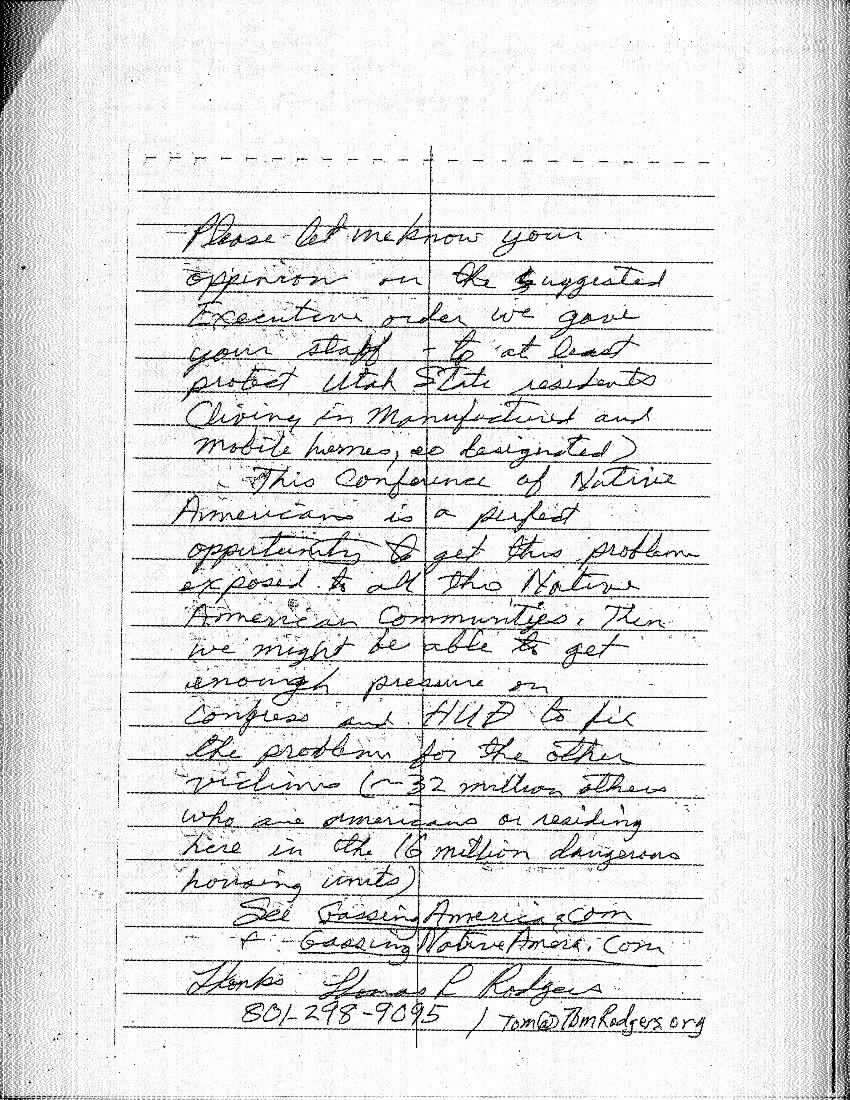 Please let me know your
oppinion on the suggested
Executive order we gave
your staff - to at least
protect Utah State residents
(living in Manufactured and
mobile homes, so designated)
This Conference of Native
Americans is a perfect
opportunity to get this problem
exposed to all the Native
American Communities. Then
we might be able to get
enough pressure on
Congress and HUD to fix
the problem for the other
victims (~32 million others
who are americans or residing
here in the 16 million dangerous
housing units)
See GassingAmerica.com
+ GassingNativeAmera.com
Thanks Thomas R Rodgers
801-298-9095 / Tom@TomRodgers.org